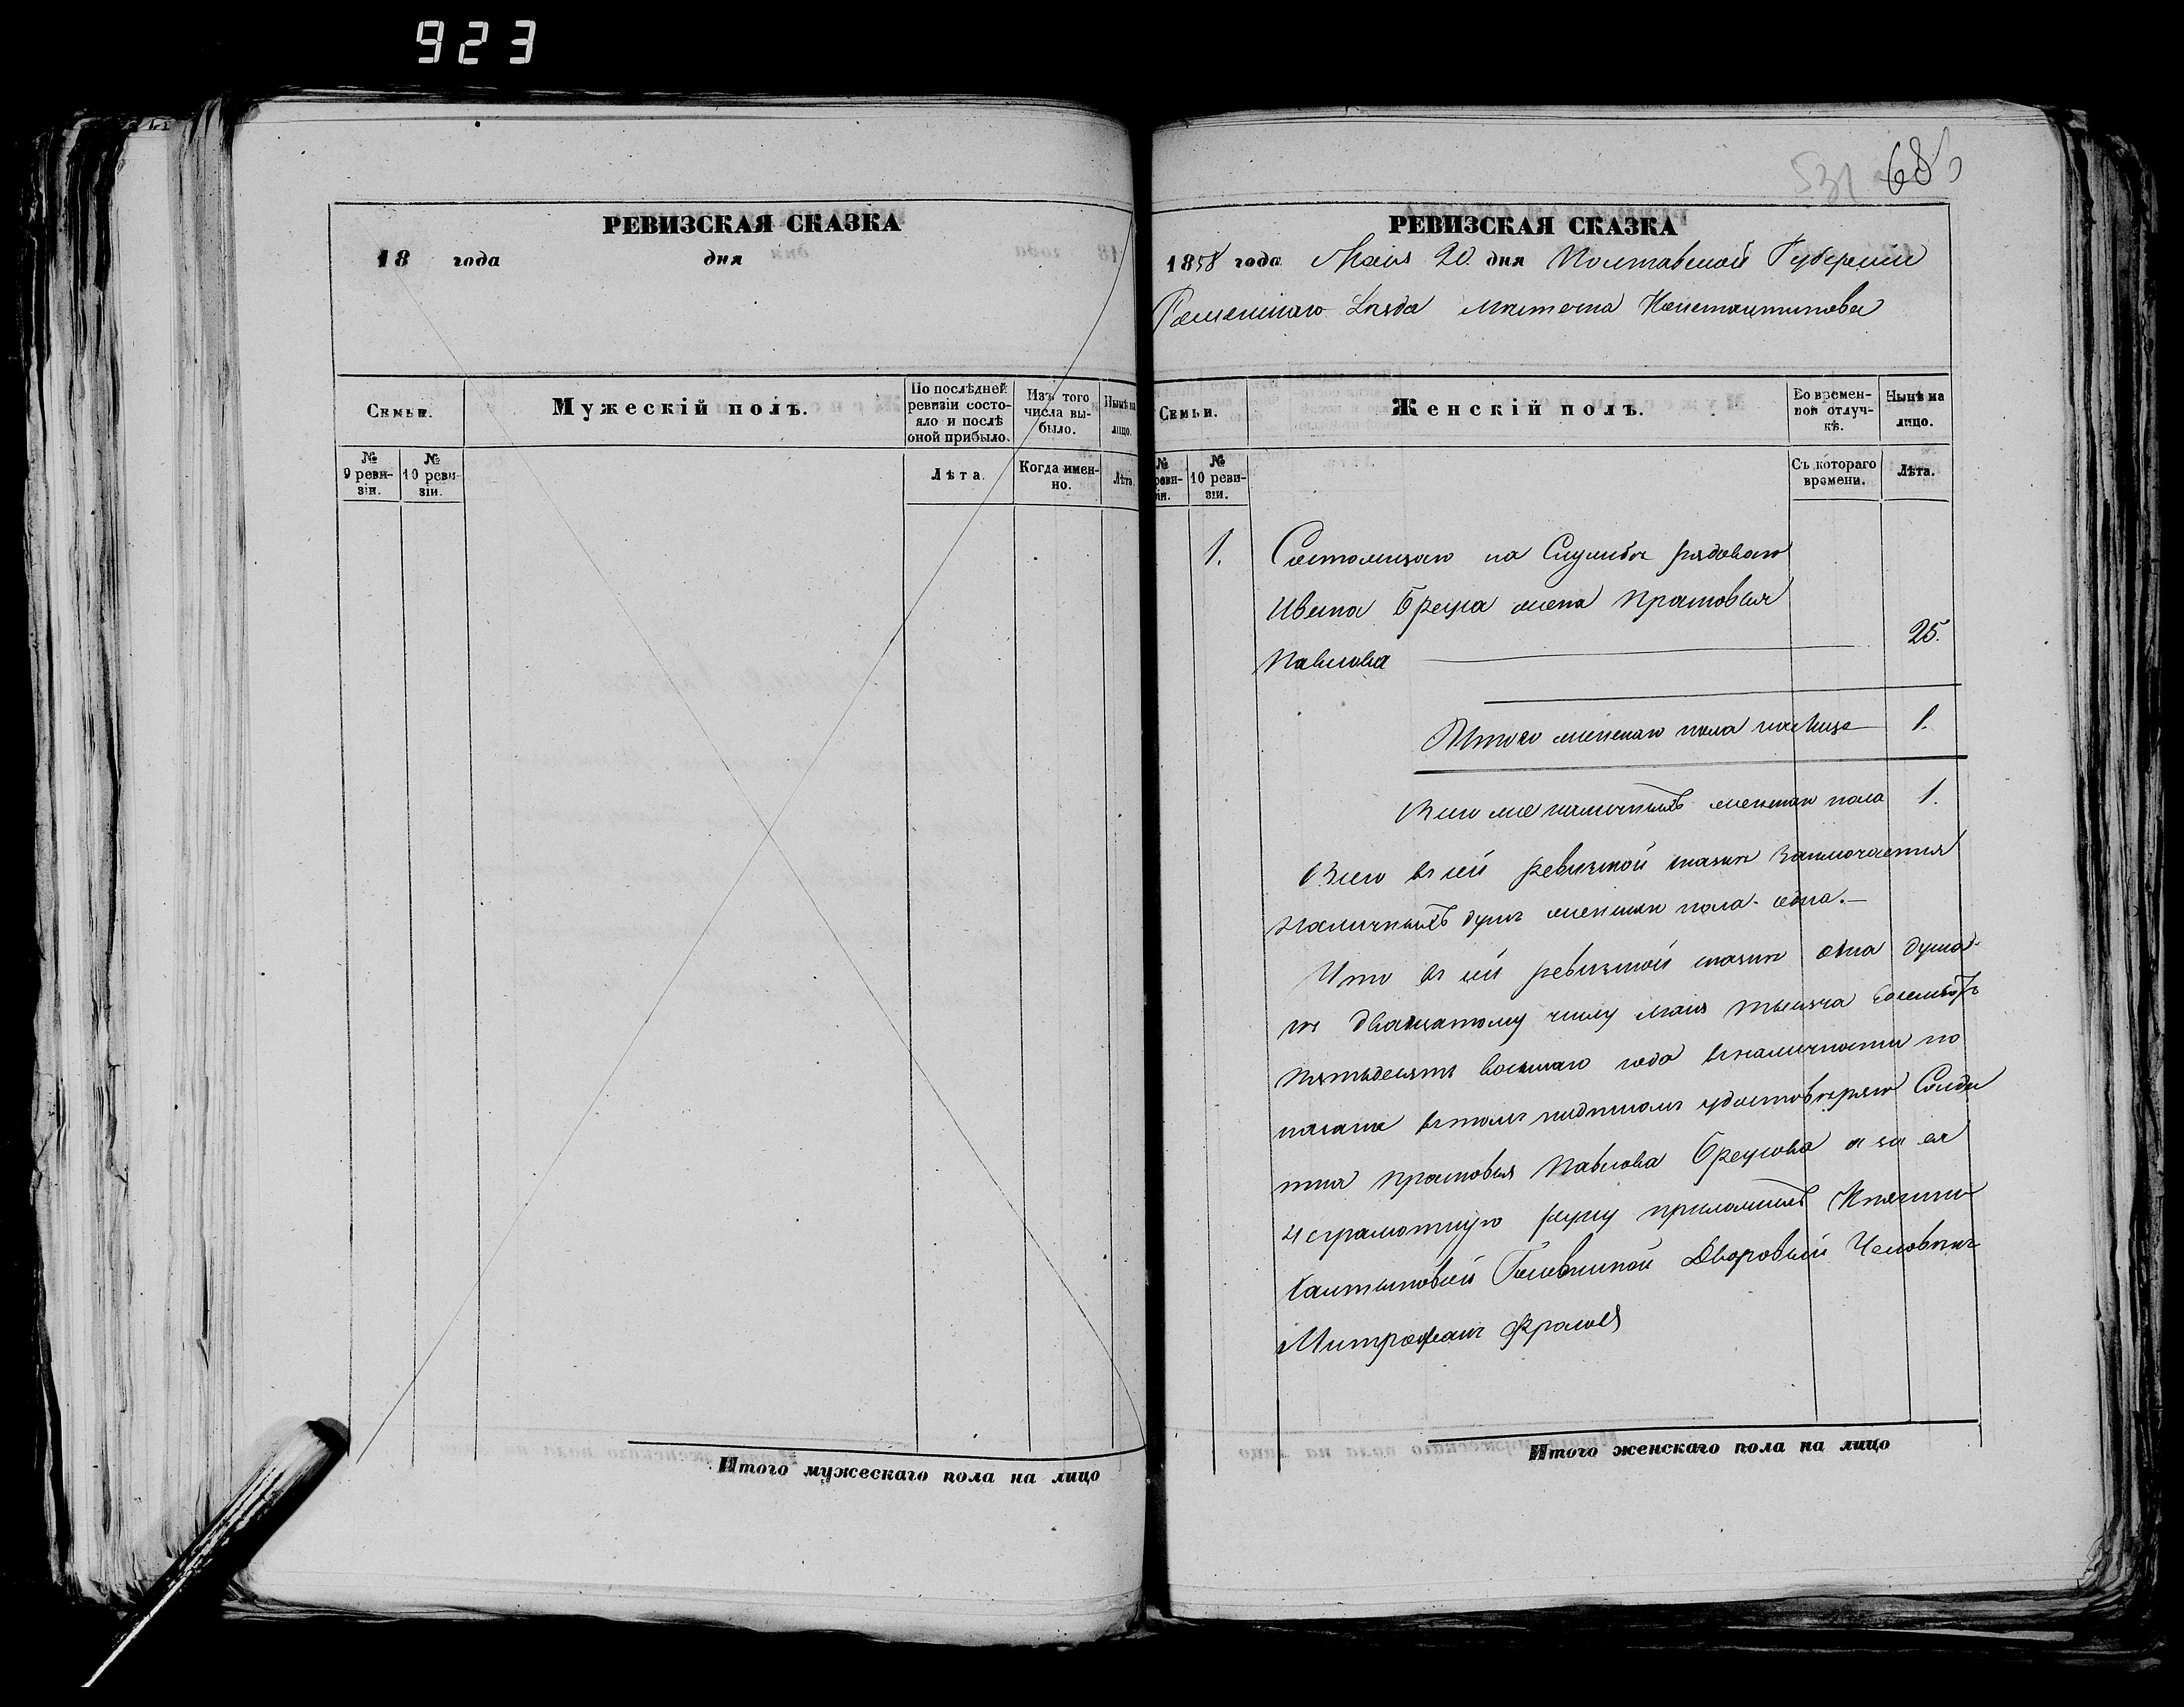 923
РЕВИЗСКАЯ СКАЗКА
18 года дня
Семьи.
Мужескій полъ.
По послѣдней ревизіи состо-
яло и послѣ
оной прибыло.
Изъ того
числа вы-
было.
Нынѣ на
лицо.
№
9 реви-
зіи.
№
10 реви-
зіи.
Лѣта.
Когда имен-
но.
Лѣта.
Итого мужескаго пола на лицо
68
РЕВИЗСКАЯ СКАЗКА
1858 года Маія 20. дня Полтавской Губерніи
Роменскаго Уѣзда мѣстечка Константинова
Семьи.
Женскій полъ.
Во времен-
ной отлуч-
кѣ.
Нынѣ на
лицо.
№
реви-
зіи.
№
10 реви-
зіи.
Съ котораго
времени.
Лѣта.
1. Состоящаго на Службѣ рядоваго
Ивана Бреуса жена Прасковья
Павлова 25.
Итого женскаго пола на лицо 1.
Всего же наличныхъ женскаго пола 1.
Всего въ сей ревизской сказкѣ заключается
наличныхъ душъ женскаго пола одна.
Что въ сей ревизской сказкѣ одна душа
къ двадцатому числу маія тысяча восемьсотъ
пятьдесятъ восьмаго года въ наличности по
казана въ томъ подписомъ удостовѣряю Солда
тка Прасковья Павлова Бреусова а за ея
неграмотную руку приложилъ Княгини
Дворовый Человѣкъ
Митрофанъ
Итого женскаго пола на лицо